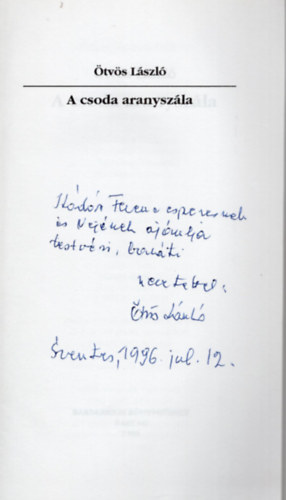 Ötvös László
A csoda aranyszála
Kádár Ferenc esperesnek
és Nejének ajánlja
testvéri, baráti
szeretettel:
Ötvös László
1996. jul. 12.